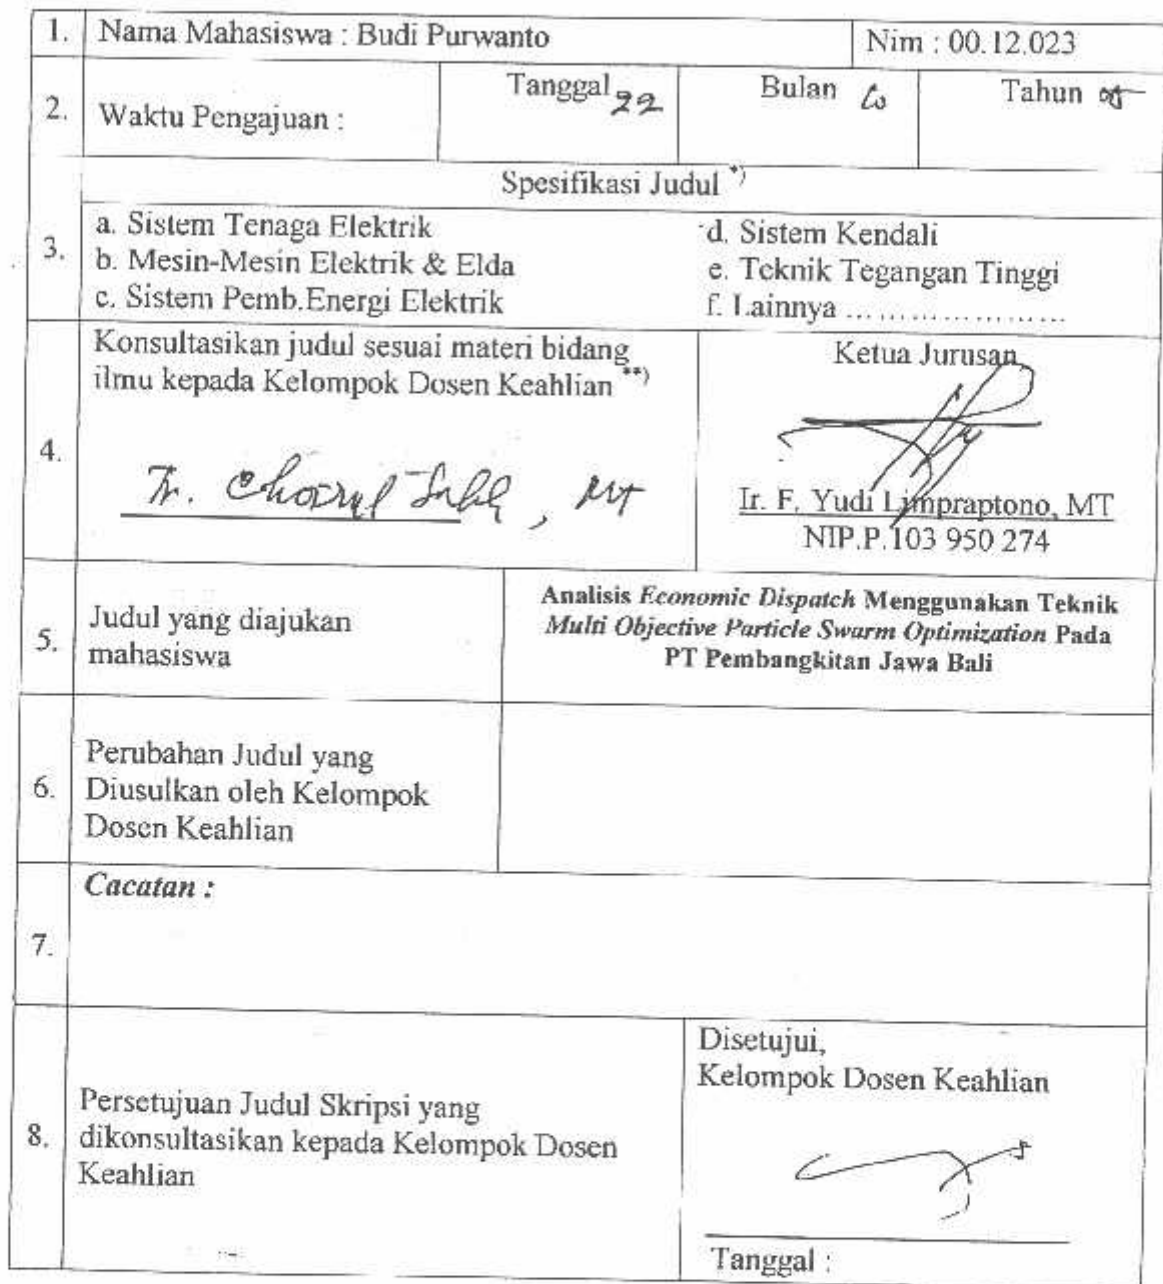 1. Nama Mahasiswa : Budi Purwanto Nim : 00.12.023
2. Waktu Pengajuan : Tanggal 22 Bulan Tahun 05
Spesifikasi Judul *)
3.
a. Sistem Tenaga Elektrik
b. Mesin-Mesin Elektrik & Elda
c. Sistem Pemb.Energi Elektrik
d. Sistem Kendali
e. Teknik Tegangan Tinggi
f. Lainnya .....................
4.
Konsultasikan judul sesuai materi bidang
ilmu kepada Kelompok Dosen Keahlian **)
Ir. Choirul Saleh, MT
Ketua Jurusan
Ir. F. Yudi Limpraptono, MT
NIP.P.103 950 274
5.
Judul yang diajukan
mahasiswa
Analisis Economic Dispatch Menggunakan Teknik
Multi Objective Particle Swarm Optimization Pada
PT Pembangkitan Jawa Bali
6.
Perubahan Judul yang
Diusulkan oleh Kelompok
Dosen Keahlian
Cacatan :
7.
8.
Persetujuan Judul Skripsi yang
dikonsultasikan kepada Kelompok Dosen
Keahlian
Disetujui,
Kelompok Dosen Keahlian
Tanggal :